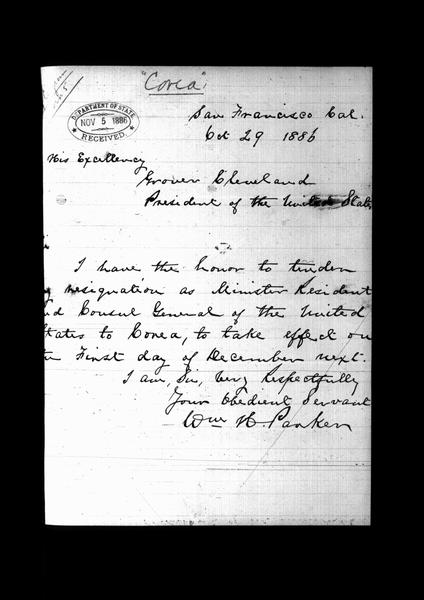 "Corea"
DEPARTMENT OF STATE
NOV 5 1886
RECEIVED.
San Francisco Cal.
Oct 29 1886
His Excellency
Grover Cleveland
President of the United States
I have the honor to tender
my resignation as Minister Resident
and Consul General of the United
States to Corea, to take effect on
the First day of December next.
I am, Sir, very respectfully
Your Obedient Servant
Wm H. Parker